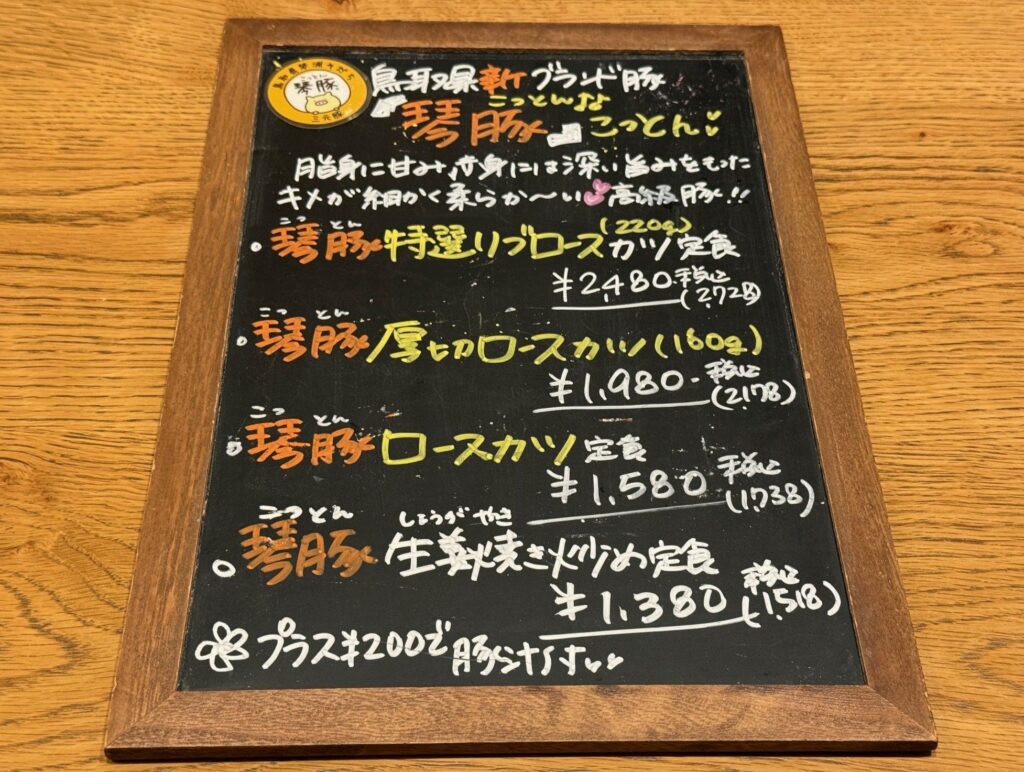 鳥取県琴浦そだち
こっとん
琴豚
三元豚
鳥取県新ブランド豚
こっとん
琴豚 こっとん
脂身に甘み、赤身には深い旨みをもった
キメが細かく柔らか〜い高級豚!!
こっ とん (220g)
琴豚特選リブロースカツ定食
¥2,480 税込
(2,728)
こっ とん
琴豚厚切ロースカツ(160g)
¥1,980- 税込
(2,178)
こっ とん
琴豚ロースカツ定食
¥1,580 税込
(1,738)
こっとん しょうがやき
琴豚生姜焼き炒め定食
¥1,380 税込
(1,518)
プラス¥200で豚汁付